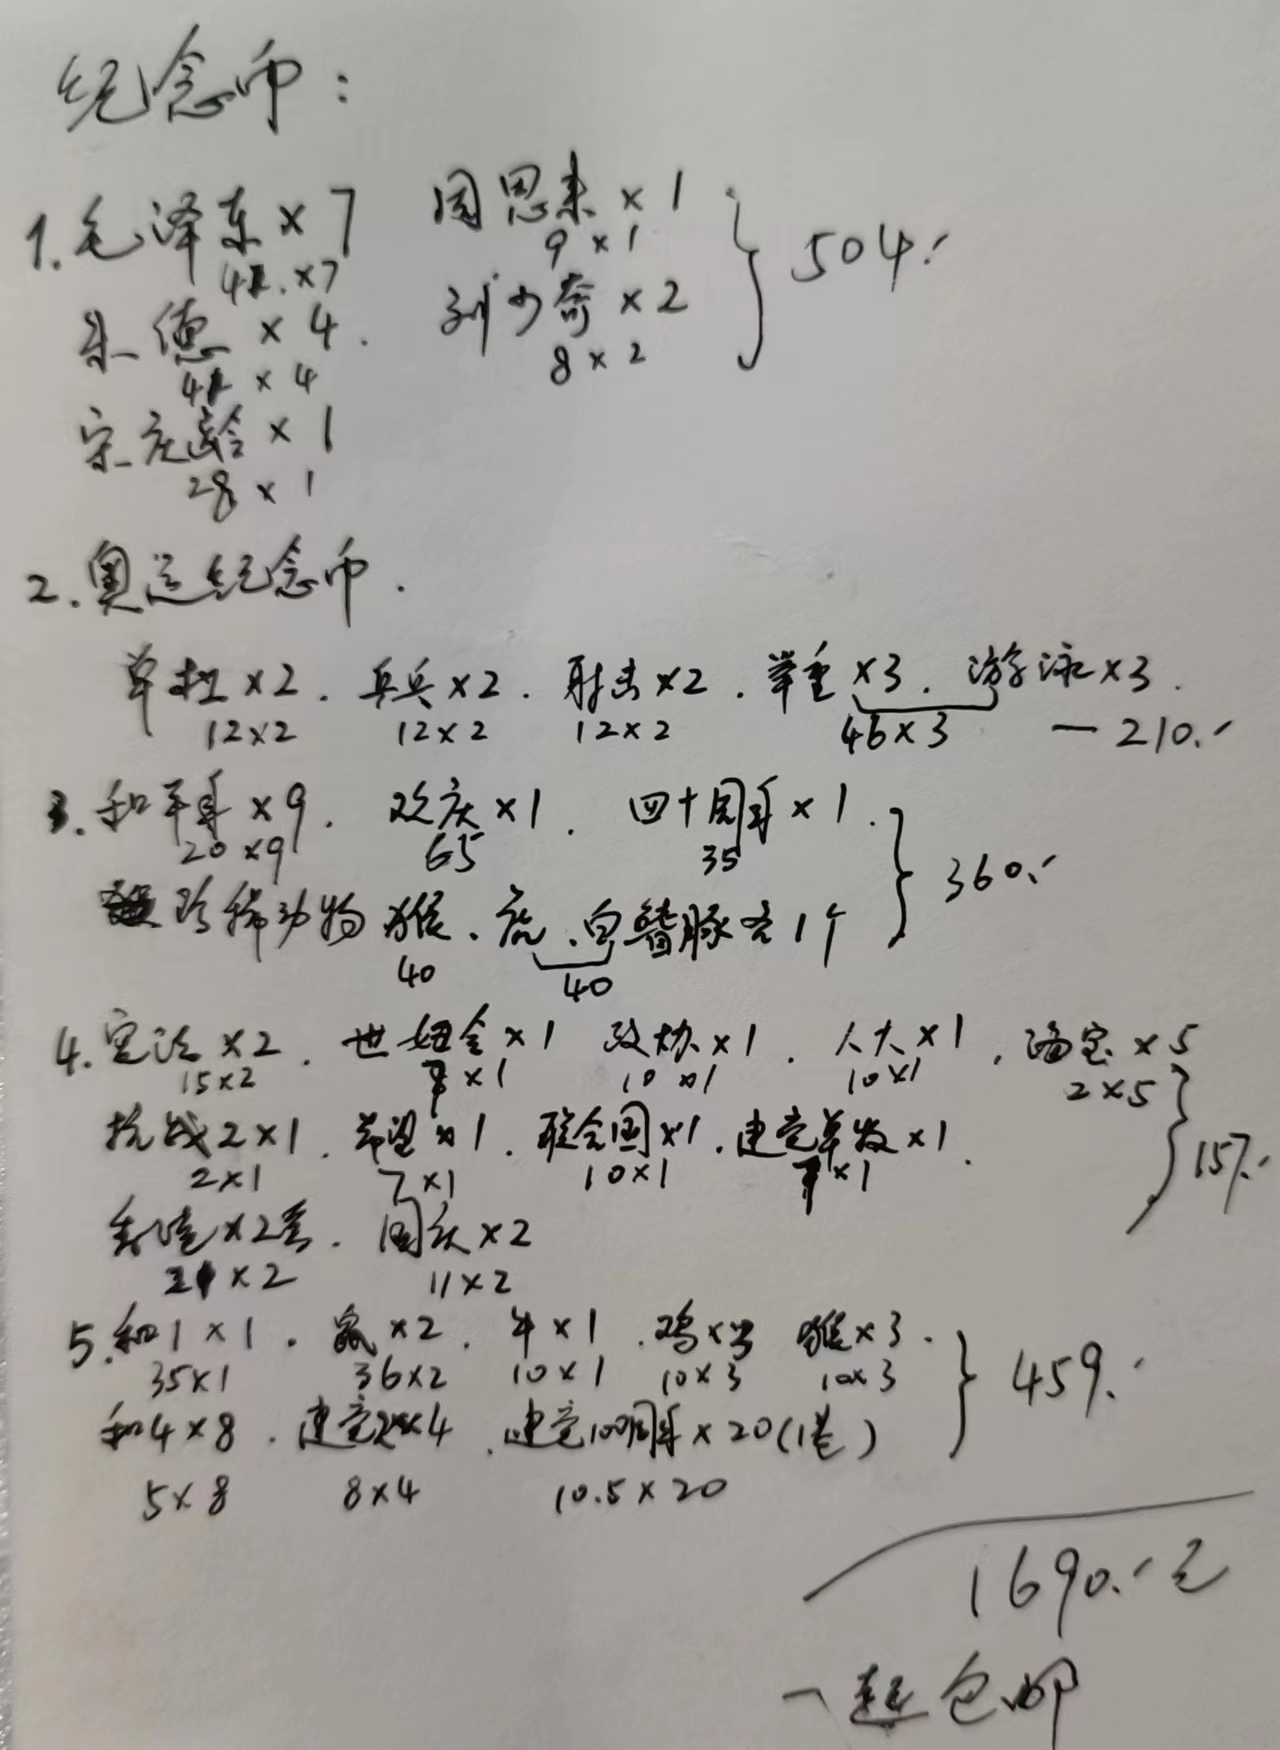 纪念币：
1.毛泽东×7 周恩来×1
41.×7 9×1 } 504.
朱德×4. 刘少奇×2
41×4 8×2
宋庆龄×1
28×1
2.奥运纪念币.
单杠×2. 乒乓×2. 射击×2. 举重×3. 游泳×3.
12×2 12×2 12×2 46×3 —210.
3.和平年×9. 欢庆×1. 四十周年×1.
20×9 65 35 } 360.
珍稀动物 猴、虎、白鳍豚各1个
40 40
4.宪法×2. 世妇会×1 政协×1. 人大×1, 陶宝×5
15×2 ×1 10×1 10×1 2×5
抗战2×1. 希望×1. 联合国×1. 建党单发×1.
2×1 7×1 10×1 ×1 } 157.
香港×2套. 国庆×2
×2 11×2
5.和1×1. 鼠×2. 牛×1. 鸡×3 猴×3.
35×1 36×2 10×1 10×3 10×3 } 459.
和4×8. 建党×4. 建党100周年×20(1卷)
5×8 8×4 10.5×20
1690.元
一起包邮